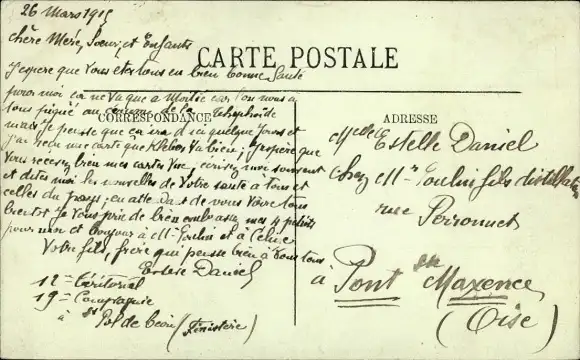 26 Mars 1915
Chère Mère, Soeur, et Enfants
CARTE POSTALE
J'espère que vous êtes tous en bien bonne Santé
pour moi ça ne va que a Moitié car l'on nous a
tous piqué au de la thephoïde
CORRESPONDANCE
mais je pense que ça ira d'ici quelque Jours et
j'ai reçu une carte que Kleber va bien; j'espère que
Vous recevez bien mes cartes Vue, écrivez moi souvent
et dites moi les nouvelles de Votre santé a tous et
celles du pays; en attendant de vous Voire tous
bientot je Vous prie de bien embrasser mes 4 petits
pour moi et bonjour à Mr Poulin et à Celine
Votre fils, frère qui pense bien à Vous tous
Daniel
12e térritorial
19e Compagnie
à St Pol de Léon (Finistère)
ADRESSE
Melle Estelle Daniel
chez Mr Poulin fils
rue Perronnet
à Pont Ste Maxence
(Oise)